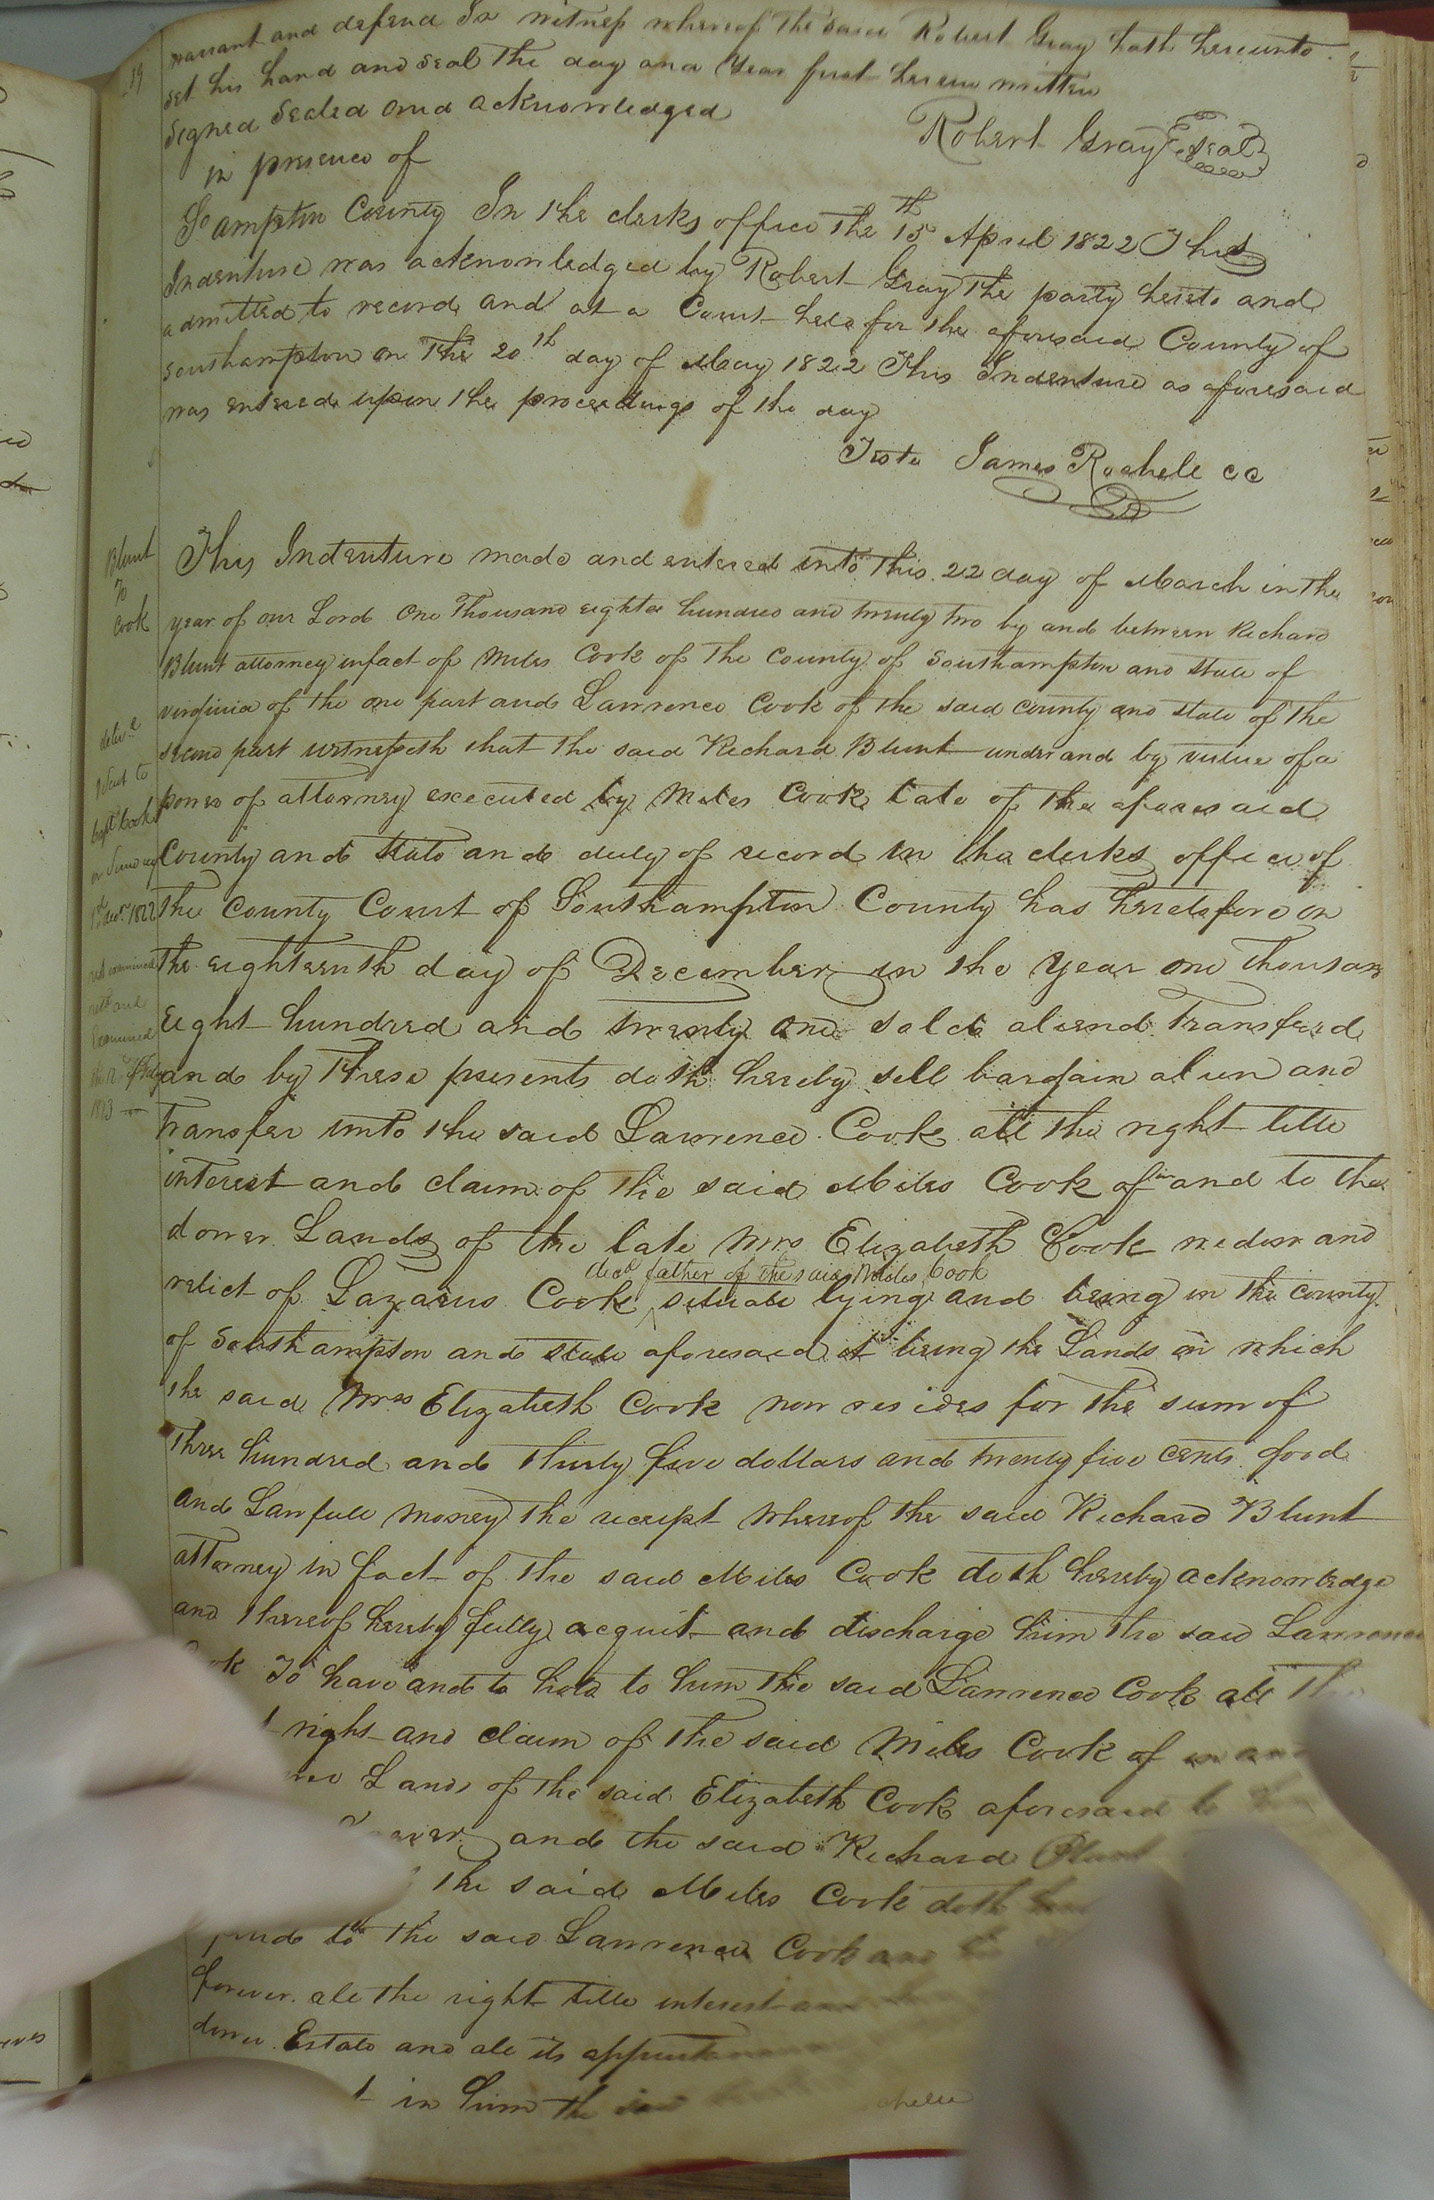 19
warrant and defend In witness whereof the said Robert Gray hath hereunto
set his hand and seal the day and year first herein written
Signed Sealed and acknowledged
in presence of
Robert Gray Seal
So ampton County In the clerks office the 15th April 1822 This
Indenture was acknowledged by Robert Gray the party hereto and
admitted to record and at a Court held for the aforesaid County of
Southampton on the 20th day of May 1822 This Indenture as aforesaid
was entered upon the proceedings of the day
Teste James Rochelle CC
Blunt
To
Cook
This Indenture made and entered into this 22 day of March in the
year of our Lord One Thousand eighteen hundred and twenty two by and between Richard
Blunt attorney infact of Miles Cook of the County of Southampton and State of
virginia of the one part and Lawrence Cook of the said county and state of the
second part witnesseth that the said Richard Blunt under and by virtue of a
power of attorney executed by Miles Cook late of the aforesaid
County and State and duly of record in the clerks office of
the County Court of Southampton County has heretofore on
the eighteenth day of December in the year one thousand
Eight hundred and twenty one sold aliend Transferd
and by these presents doth hereby sell bargain alien and
Transfer unto the said Lawrence Cook all the right title
interest and claim of the said Miles Cook of in and to the
dower Lands of the late Mrs Elizabeth Cook widow and
decd father of the said Miles Cook
relict of Lazarus Cook situate lying and being in the county
of Southampton and state aforesaid it being the Lands on which
the said Mrs Elizabeth Cook now resides for the sum of
Three hundred and thirty five dollars and twenty five cents good
and Lawfull money the receipt whereof the said Richard Blunt
attorney in fact of the said Miles Cook doth hereby acknowledge
and thereof hereby fully acquit and discharge him the said Lawrence
To have and to hold to him the said Lawrence Cook all the
right and claim of the said Miles Cook of in and
Lands of the said Elizabeth Cook aforesaid to
and the said Richard Blunt
the said Miles Cook doth
to the said Lawrence Cook and
forever all the right title interest
dower Estate and all its
in him the said